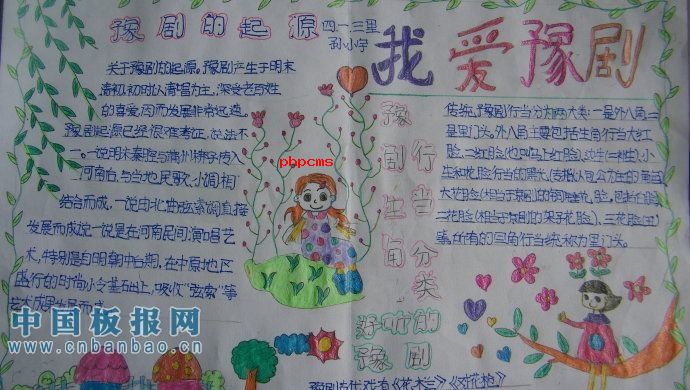 豫剧的起源
四一三里
孙小宇
我爱豫剧
关于豫剧的起源,豫剧产生于明末
清初,初时以清唱为主,深受老百姓
的喜爱,因而发展非常迅速。
豫剧起源已经很难考证,说法不
一。一说明末秦腔与蒲州梆子传入
河南后,与当地民歌、小调相
结合而成,一说由北曲弦索调直接
发展而成;一说是在河南民间演唱艺
术,特别是自明朝中后期,在中原地区
盛行的时尚小令基础上,吸收"弦索"等
艺术成果发展而成。
phpcms
豫剧生旬
行当分类
传统,豫剧行当分为两大类:一是外八角,二
是里门头。外八角主要包括生角行当大红
脸、二红脸(也叫马上红脸)、边生(二补生)、小
生和花脸行当的黑头(传概认包公为主的)
大花脸(相当于京剧的铜锤花脸)
二花脸(相当于京剧的架子花脸)、三花脸(丑)
等,所有的旦角行当统称为里门头。
好听的
豫剧
豫剧古代戏有《花木兰》《对花枪》
中国板报网
www.cnbanbao.cn